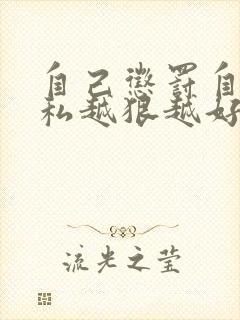 自己惩罚自
私越狠越好
流光之莹